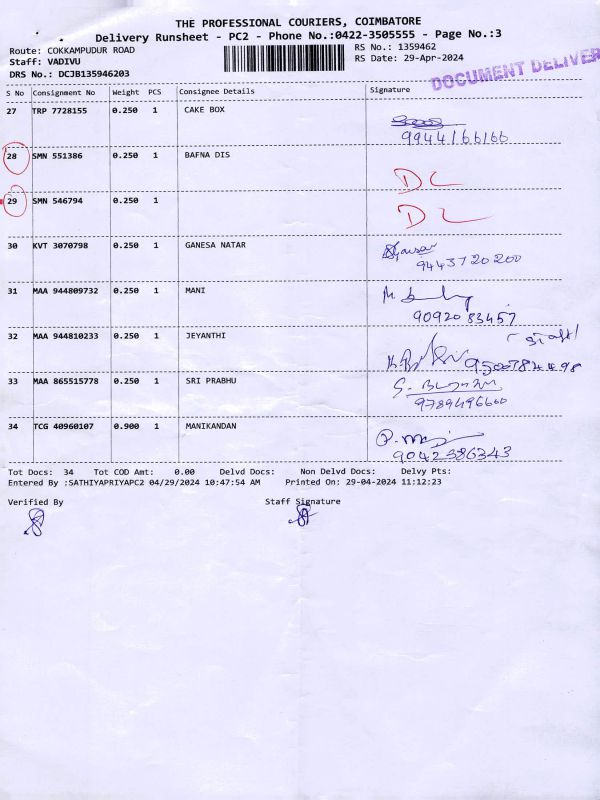 THE PROFESSIONAL COURIERS, COIMBATORE
Delivery Runsheet - PC2 - Phone No.:0422-3505555 - Page No.:3
Route: COKKAMPUDUR ROAD
RS No.: 1359462
Staff: VADIVU
RS Date: 29-Apr-2024
DRS No.: DCJB135946203
DOCUMENT DELIVER
S No Consignment No Weight PCS Consignee Details Signature
27 TRP 7728155 0.250 1 CAKE BOX
9944166166
28 SMN 551386 0.250 1 BAFNA DIS
DL
29 SMN 546794 0.250 1
DL
30 KVT 3070798 0.250 1 GANESA NATAR
9443720200
31 MAA 944809732 0.250 1 MANI
9092083457
32 MAA 944810233 0.250 1 JEYANTHI
33 MAA 865515778 0.250 1 SRI PRABHU
9789496600
34 TCG 40960107 0.900 1 MANIKANDAN
9042386343
Tot Docs: 34 Tot COD Amt: 0.00 Delvd Docs: Non Delvd Docs: Delvy Pts:
Entered By :SATHIYAPRIYAPC2 04/29/2024 10:47:54 AM Printed On: 29-04-2024 11:12:23
Verified By Staff Signature